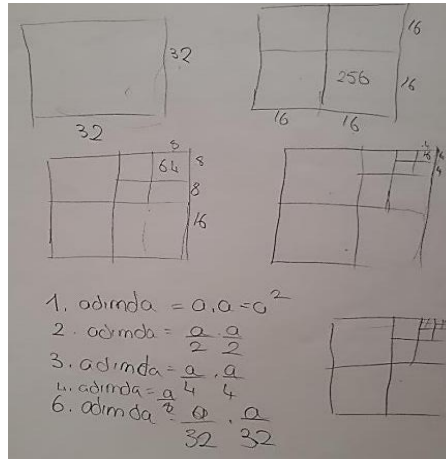 32
32
16
256
16
16 16
8
64 8
8
16
16
4
4
1. adımda = a.a=a²
2. adımda = a/2 . a/2
3. adımda = a/4 . a/4
4. adımda = a/8
6. adımda = a/32 . a/32